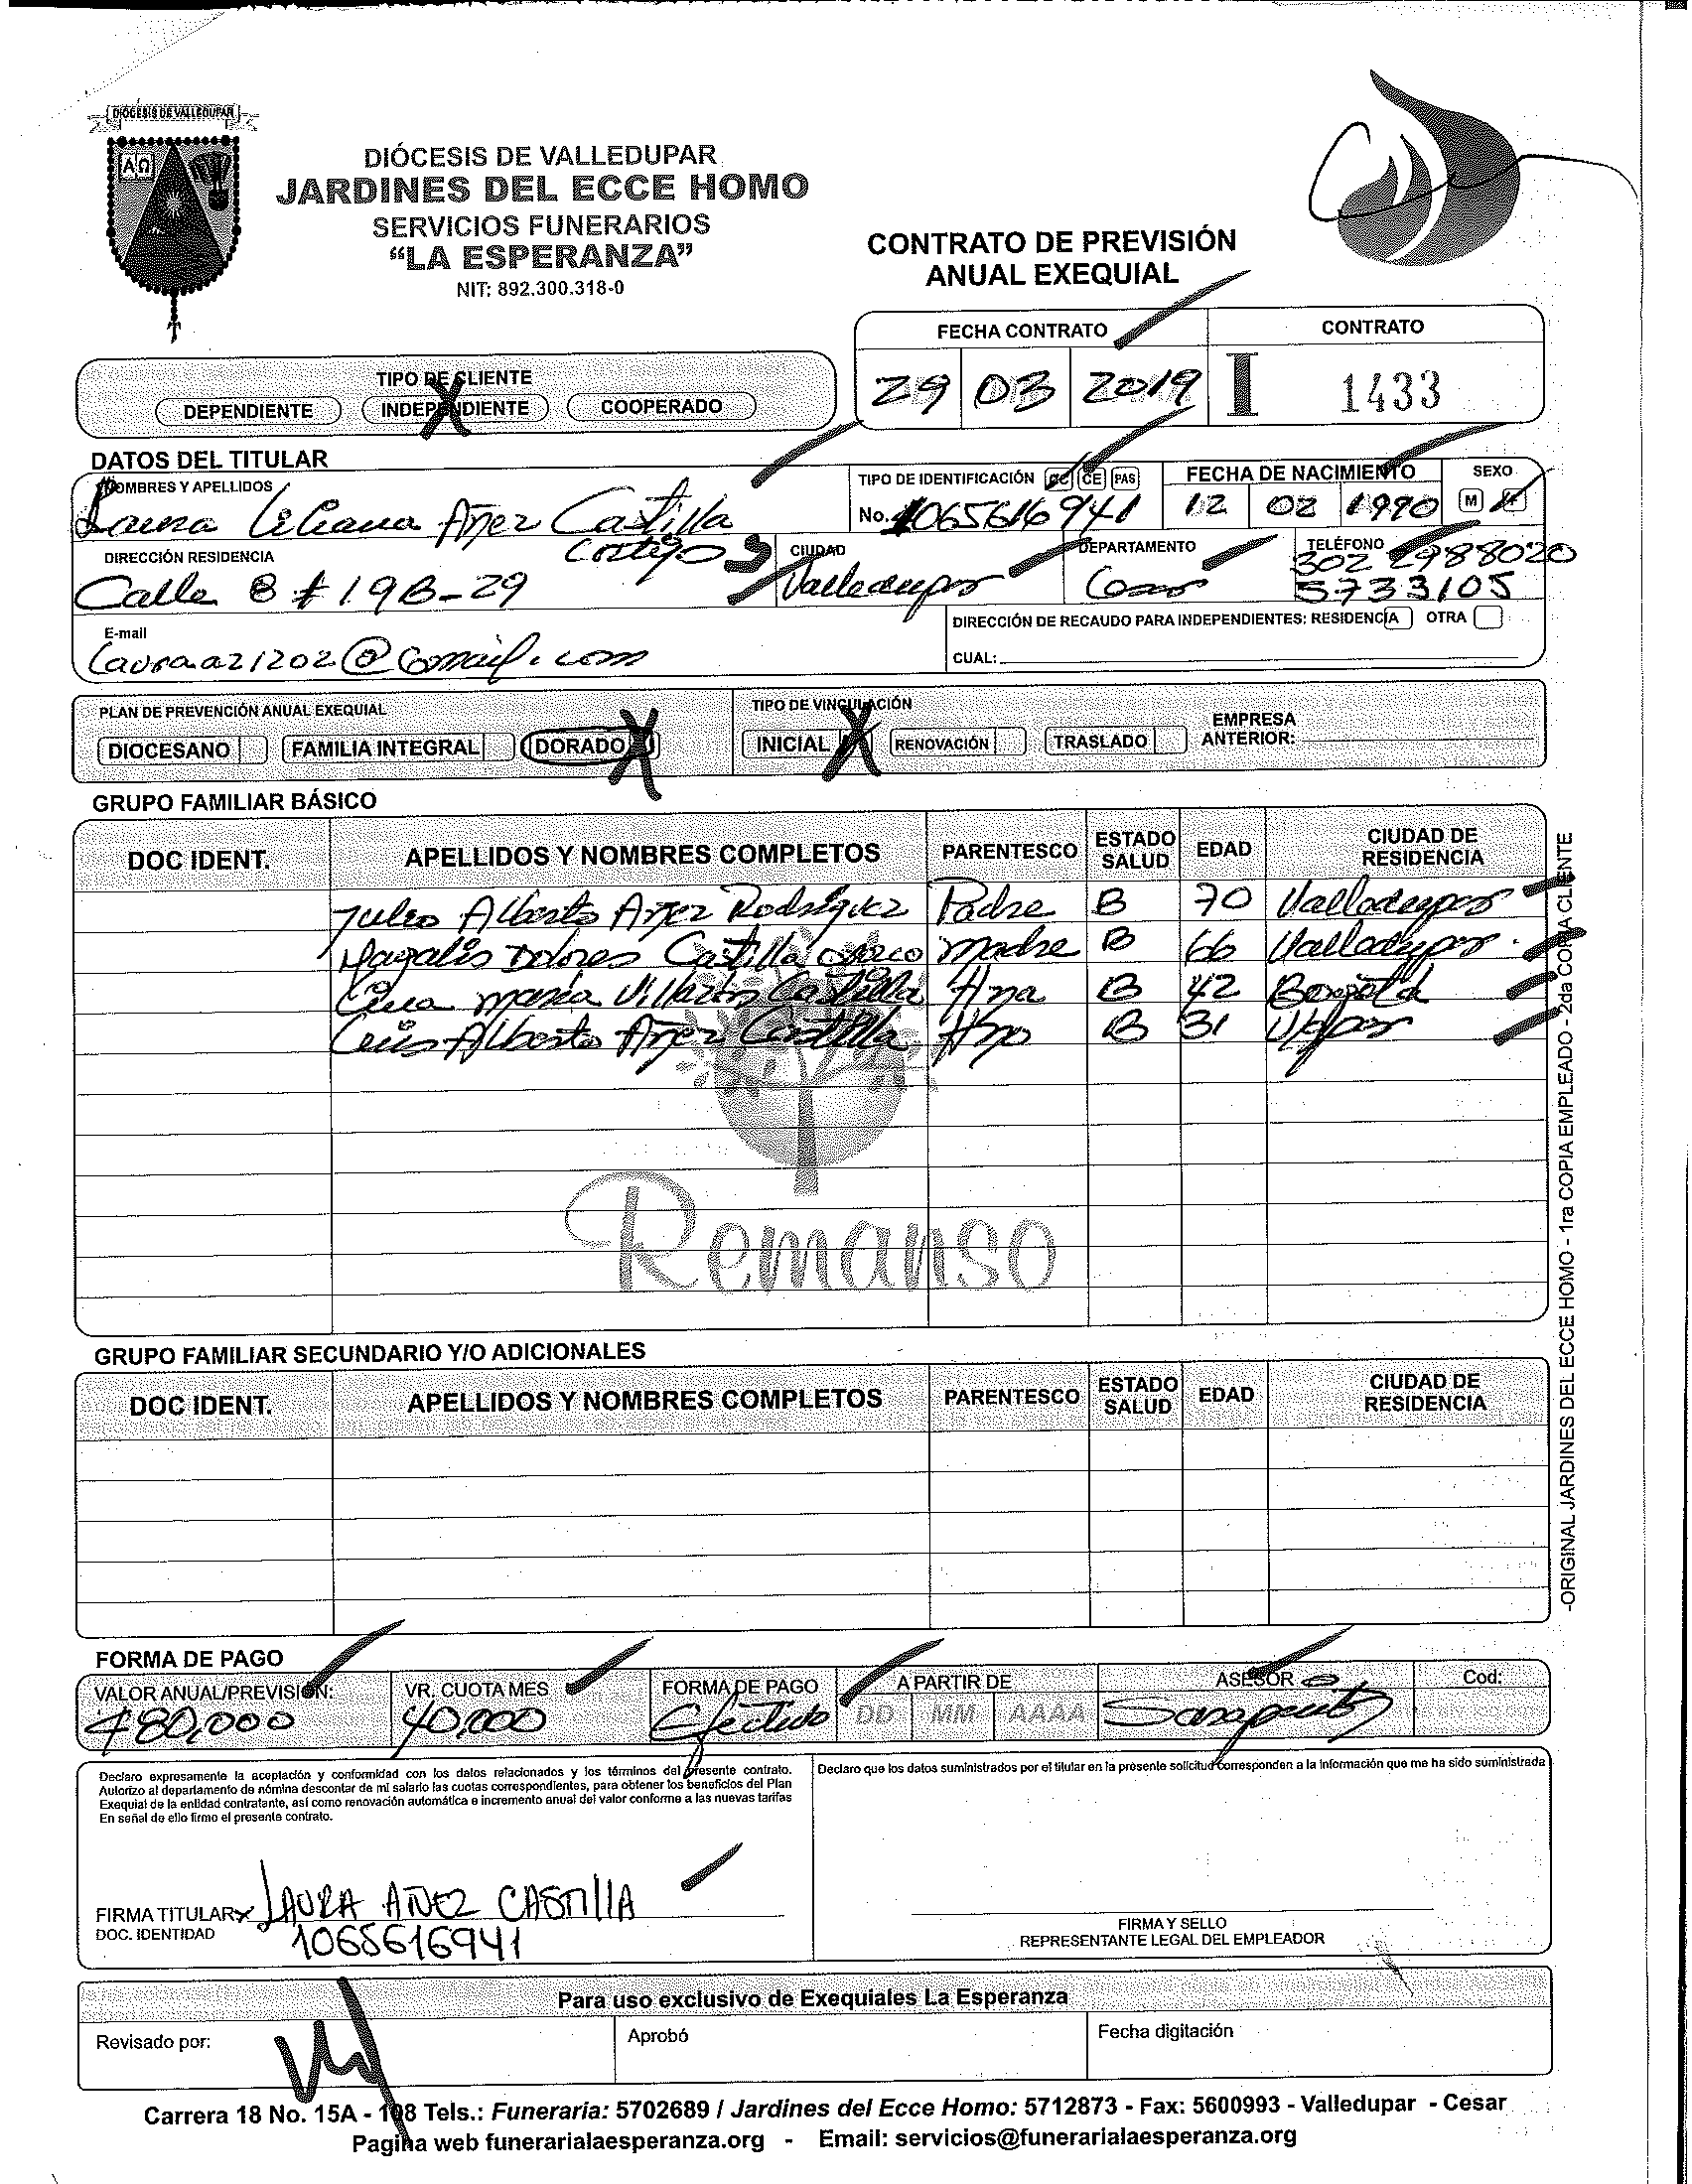 DIÓCESIS DE VALLEDUPAR
ΑΩ
DIÓCESIS DE VALLEDUPAR
JARDINES DEL ECCE HOMO
SERVICIOS FUNERARIOS
“LA ESPERANZA”
NIT: 892.300.318-0
CONTRATO DE PREVISIÓN
ANUAL EXEQUIAL
FECHA CONTRATO CONTRATO
29 03 2019 I 1433
TIPO DE CLIENTE
DEPENDIENTE INDEPENDIENTE X COOPERADO
DATOS DEL TITULAR
NOMBRES Y APELLIDOS TIPO DE IDENTIFICACIÓN CC CE PAS FECHA DE NACIMIENTO SEXO
Laura Liliana Añez Castilla No. 1065616941 12 02 1990 M F
DIRECCIÓN RESIDENCIA CIUDAD DEPARTAMENTO TELÉFONO
Calle 8 # 19B-29 Valledupar Cesar 302 2988020
5733105
E-mail DIRECCIÓN DE RECAUDO PARA INDEPENDIENTES: RESIDENCIA OTRA
Lauraa21202@Gmail.com CUAL:
PLAN DE PREVENCIÓN ANUAL EXEQUIAL TIPO DE VINCULACIÓN
DIOCESANO FAMILIA INTEGRAL DORADO X INICIAL X RENOVACIÓN TRASLADO EMPRESA ANTERIOR:
GRUPO FAMILIAR BÁSICO
DOC IDENT. APELLIDOS Y NOMBRES COMPLETOS PARENTESCO ESTADO SALUD EDAD CIUDAD DE RESIDENCIA
Julio Alberto Añez Rodriguez Padre B 70 Valledupar
Magalis Dolores Castilla madre B 66 Valledupar
maria Villazon Castilla Hna B 42 Bogotá
Luis Alberto Añez Castilla Hno B 31 V/par
Remanso
GRUPO FAMILIAR SECUNDARIO Y/O ADICIONALES
DOC IDENT. APELLIDOS Y NOMBRES COMPLETOS PARENTESCO ESTADO SALUD EDAD CIUDAD DE RESIDENCIA
-ORIGINAL JARDINES DEL ECCE HOMO - 1ra COPIA EMPLEADO - 2da COPIA CLIENTE
FORMA DE PAGO
VALOR ANUAL/PREVISIÓN: VR. CUOTA MES FORMA DE PAGO A PARTIR DE ASESOR Cod:
480,000 40,000 Efectivo DD MM AAAA
Declaro expresamente la aceptación y conformidad con los datos relacionados y los términos del presente contrato.
Autorizo al departamento de nómina descontar de mi salario las cuotas correspondientes, para obtener los beneficios del Plan
Exequial de la entidad contratante, así como renovación automática e incremento anual del valor conforme a las nuevas tarifas
En señal de ello firmo el presente contrato.
Declaro que los datos suministrados por el titular en la presente solicitud corresponden a la información que me ha sido suministrada
FIRMA TITULAR x LAURA AÑEZ CASTIllA
DOC. IDENTIDAD 1065616941
FIRMA Y SELLO
REPRESENTANTE LEGAL DEL EMPLEADOR
Para uso exclusivo de Exequiales La Esperanza
Revisado por: Aprobó Fecha digitación
Carrera 18 No. 15A - 108 Tels.: Funeraria: 5702689 / Jardines del Ecce Homo: 5712873 - Fax: 5600993 - Valledupar - Cesar
Pagina web funerarialaesperanza.org - Email: servicios@funerarialaesperanza.org